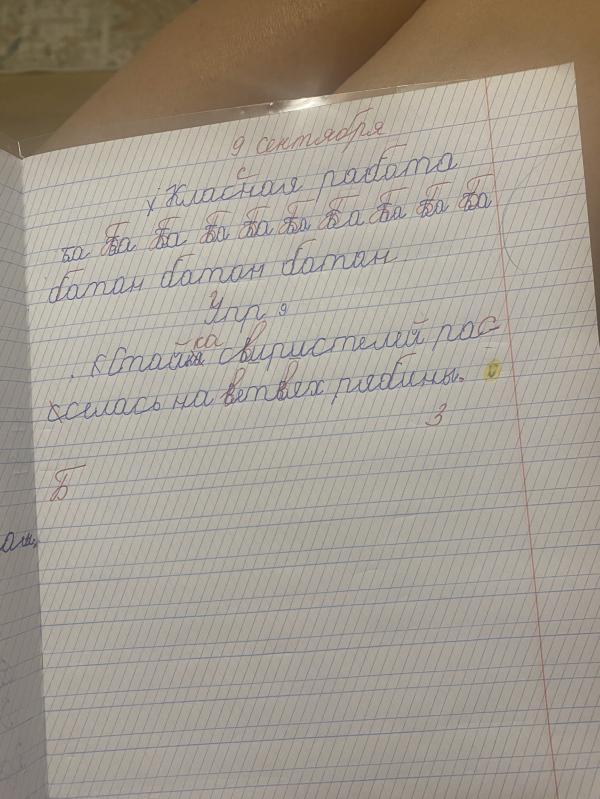 9 сентября
с
Класная работа
Ба Ба Ба Ба Ба Ба Ба Ба Ба Ба
батан батан батан
Упр 9
ка
Стайка свиристелей рас
селась на ветвях рябины.
3
Б